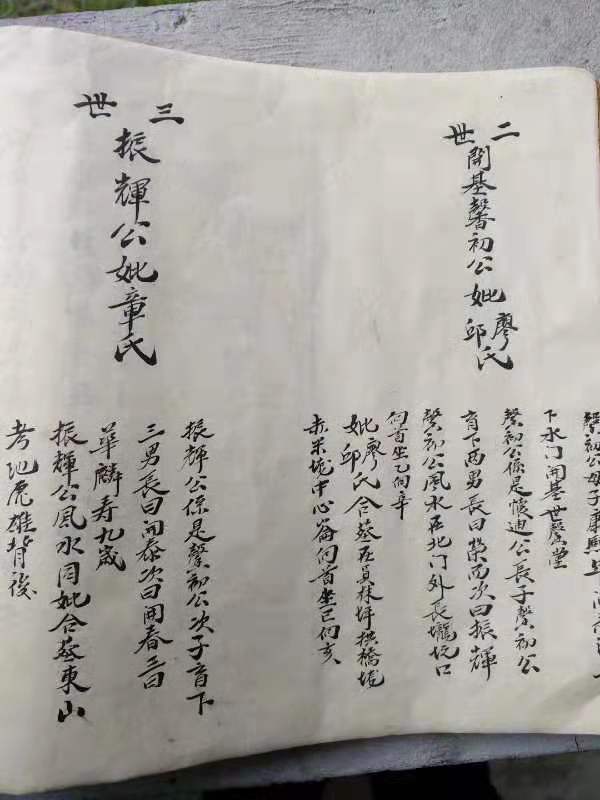 二世
開基馨初公妣廖邱氏
下水门開基世居堂
馨初公係是懷迪公長子馨初公
育下两男長曰榮而次曰振輝
馨初公風水在北门外長壠坑口
向首坐乙向辛
妣廖邱氏合葬在員林坪拱橋坑
赤不坑中心崙向首坐巳向亥
三世
振輝公妣章氏
振輝公係是馨初公次子育下
三男長曰開泰次曰開春三曰
華麟寿九歲
振輝公風水同妣合葬東山
考地虎雄背後